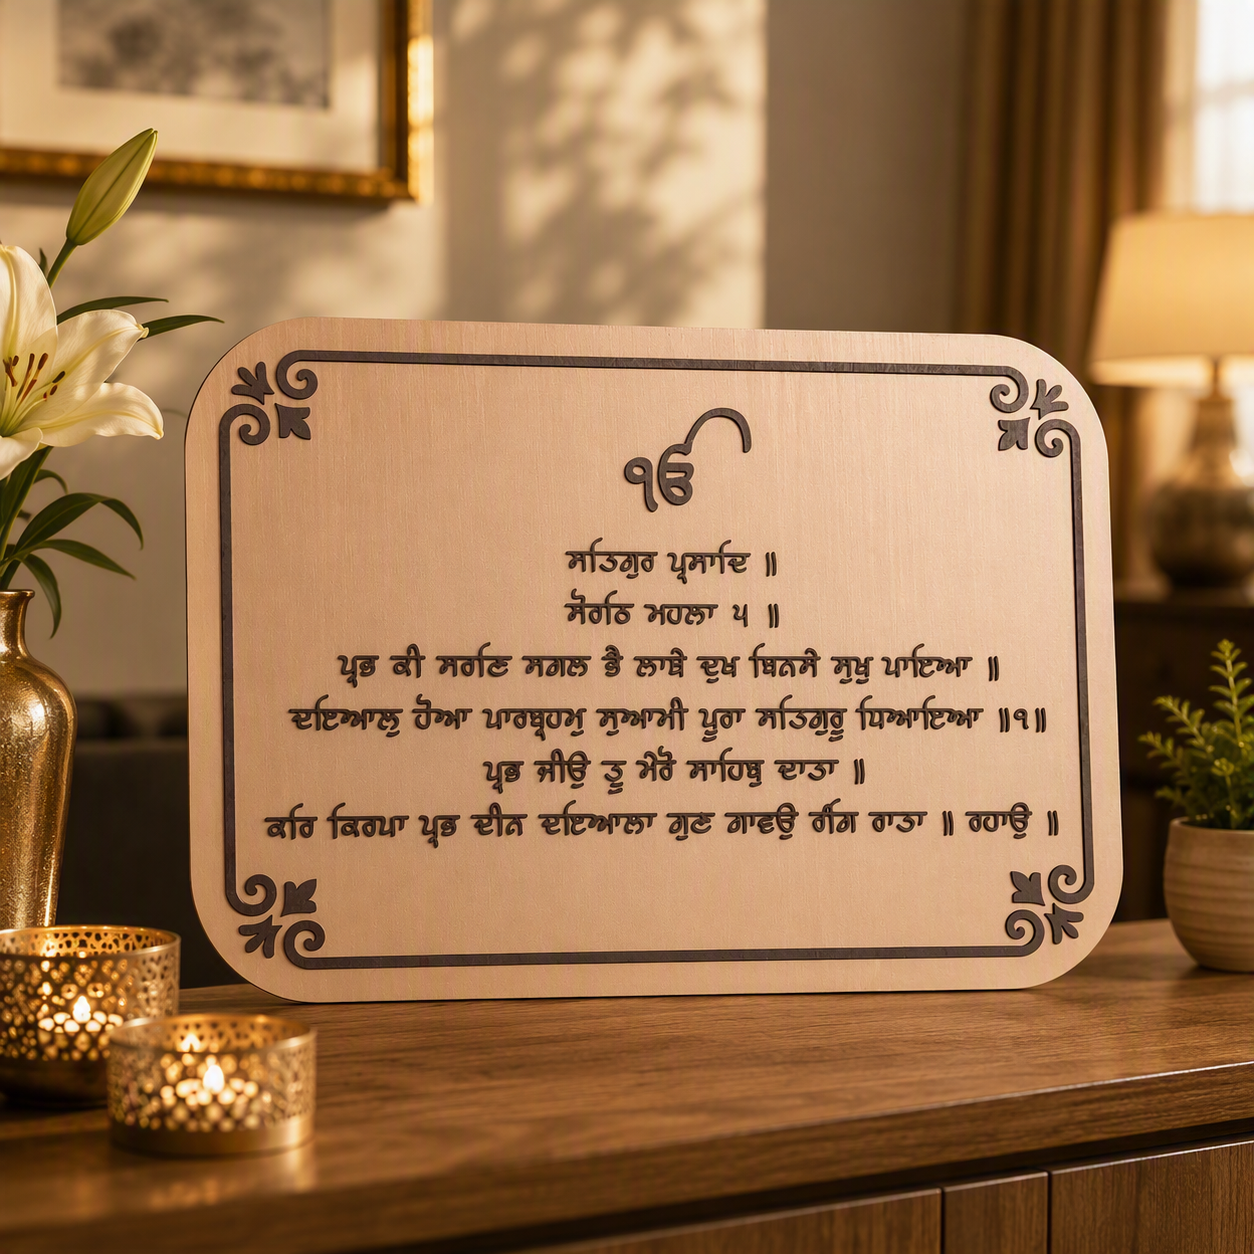 ੴ
ਸਤਿਗੁਰ ਪ੍ਰਸਾਦਿ ॥
ਸੋਰਠਿ ਮਹਲਾ ੫ ॥
ਪ੍ਰਭ ਕੀ ਸਰਣਿ ਸਗਲ ਭੈ ਲਾਥੇ ਦੁਖ ਬਿਨਸੇ ਸੁਖੁ ਪਾਇਆ ॥
ਦਇਆਲੁ ਹੋਆ ਪਾਰਬ੍ਰਹਮੁ ਸੁਆਮੀ ਪੂਰਾ ਸਤਿਗੁਰੂ ਧਿਆਇਆ ॥੧॥
ਪ੍ਰਭ ਜੀਉ ਤੂ ਮੇਰੋ ਸਾਹਿਬੁ ਦਾਤਾ ॥
ਕਰਿ ਕਿਰਪਾ ਪ੍ਰਭ ਦੀਨ ਦਇਆਲਾ ਗੁਣ ਗਾਵਉ ਰੰਗਿ ਰਾਤਾ ॥ ਰਹਾਉ ॥